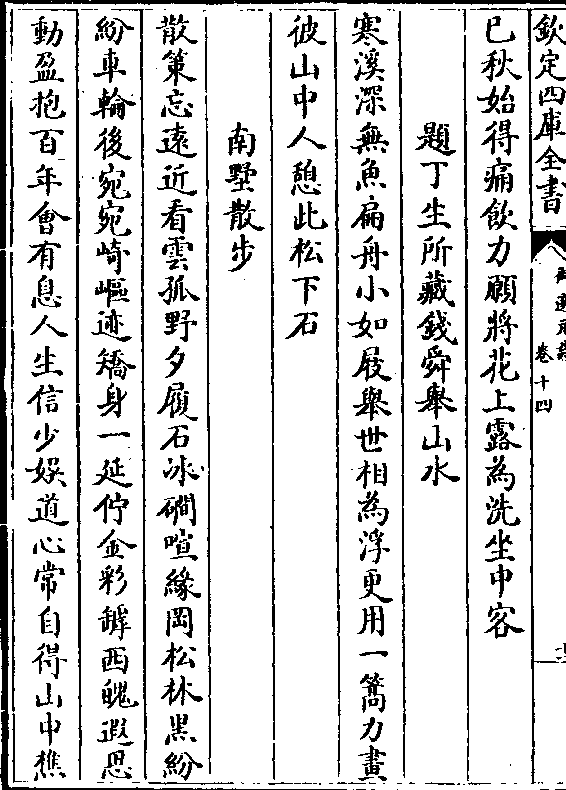 欽定四庫全書
卷十四
已秋始得痛飲力願將花上露為洗坐中客
題丁生所藏錢舜舉山水
寒溪深無魚扁舟小如屐舉世相為浮更用一篙力畫
彼山中人憩此松下石
南墅散步
散策忘遠近看雲孤野夕履石冰磵喧緣岡松林黑紛
紛車輪後宛宛崎嶇迹矯身一延佇金彩罅西魄遐思
動盈抱百年會有息人生信少娱道心常自得山中樵